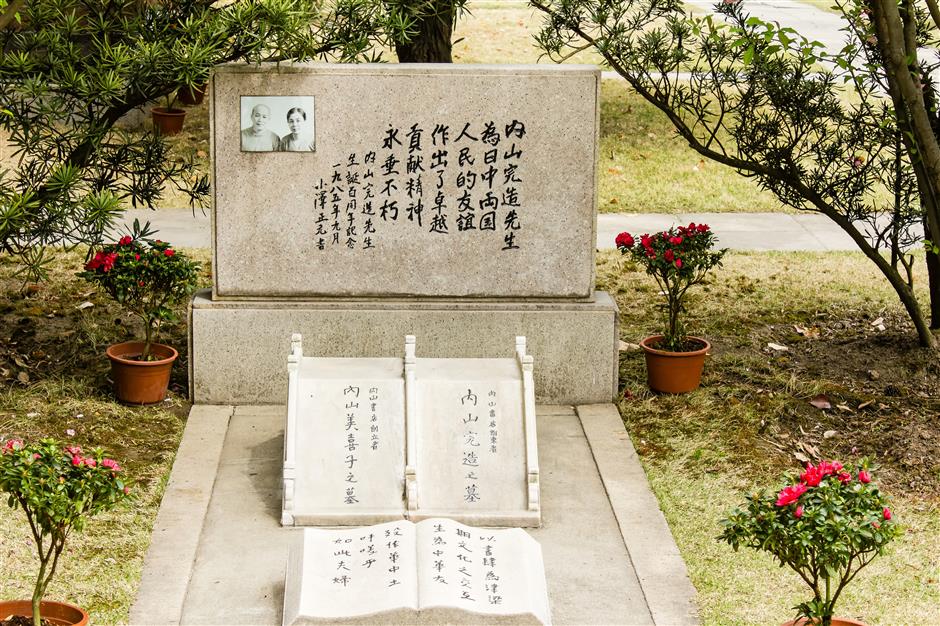 内山完造先生
為日中両国
人民的友誼
作出了卓越
貢献精神
永垂不朽
内山完造先生
生誕百周年記念
一九八五年九月
小澤正元書
内山書店創立者
内山完造之墓
内山書店創立者
内山美喜子之墓
以書肆為津梁
期文化之交互
生為中華友
殁作華中土
吁嗟乎
如此夫婦